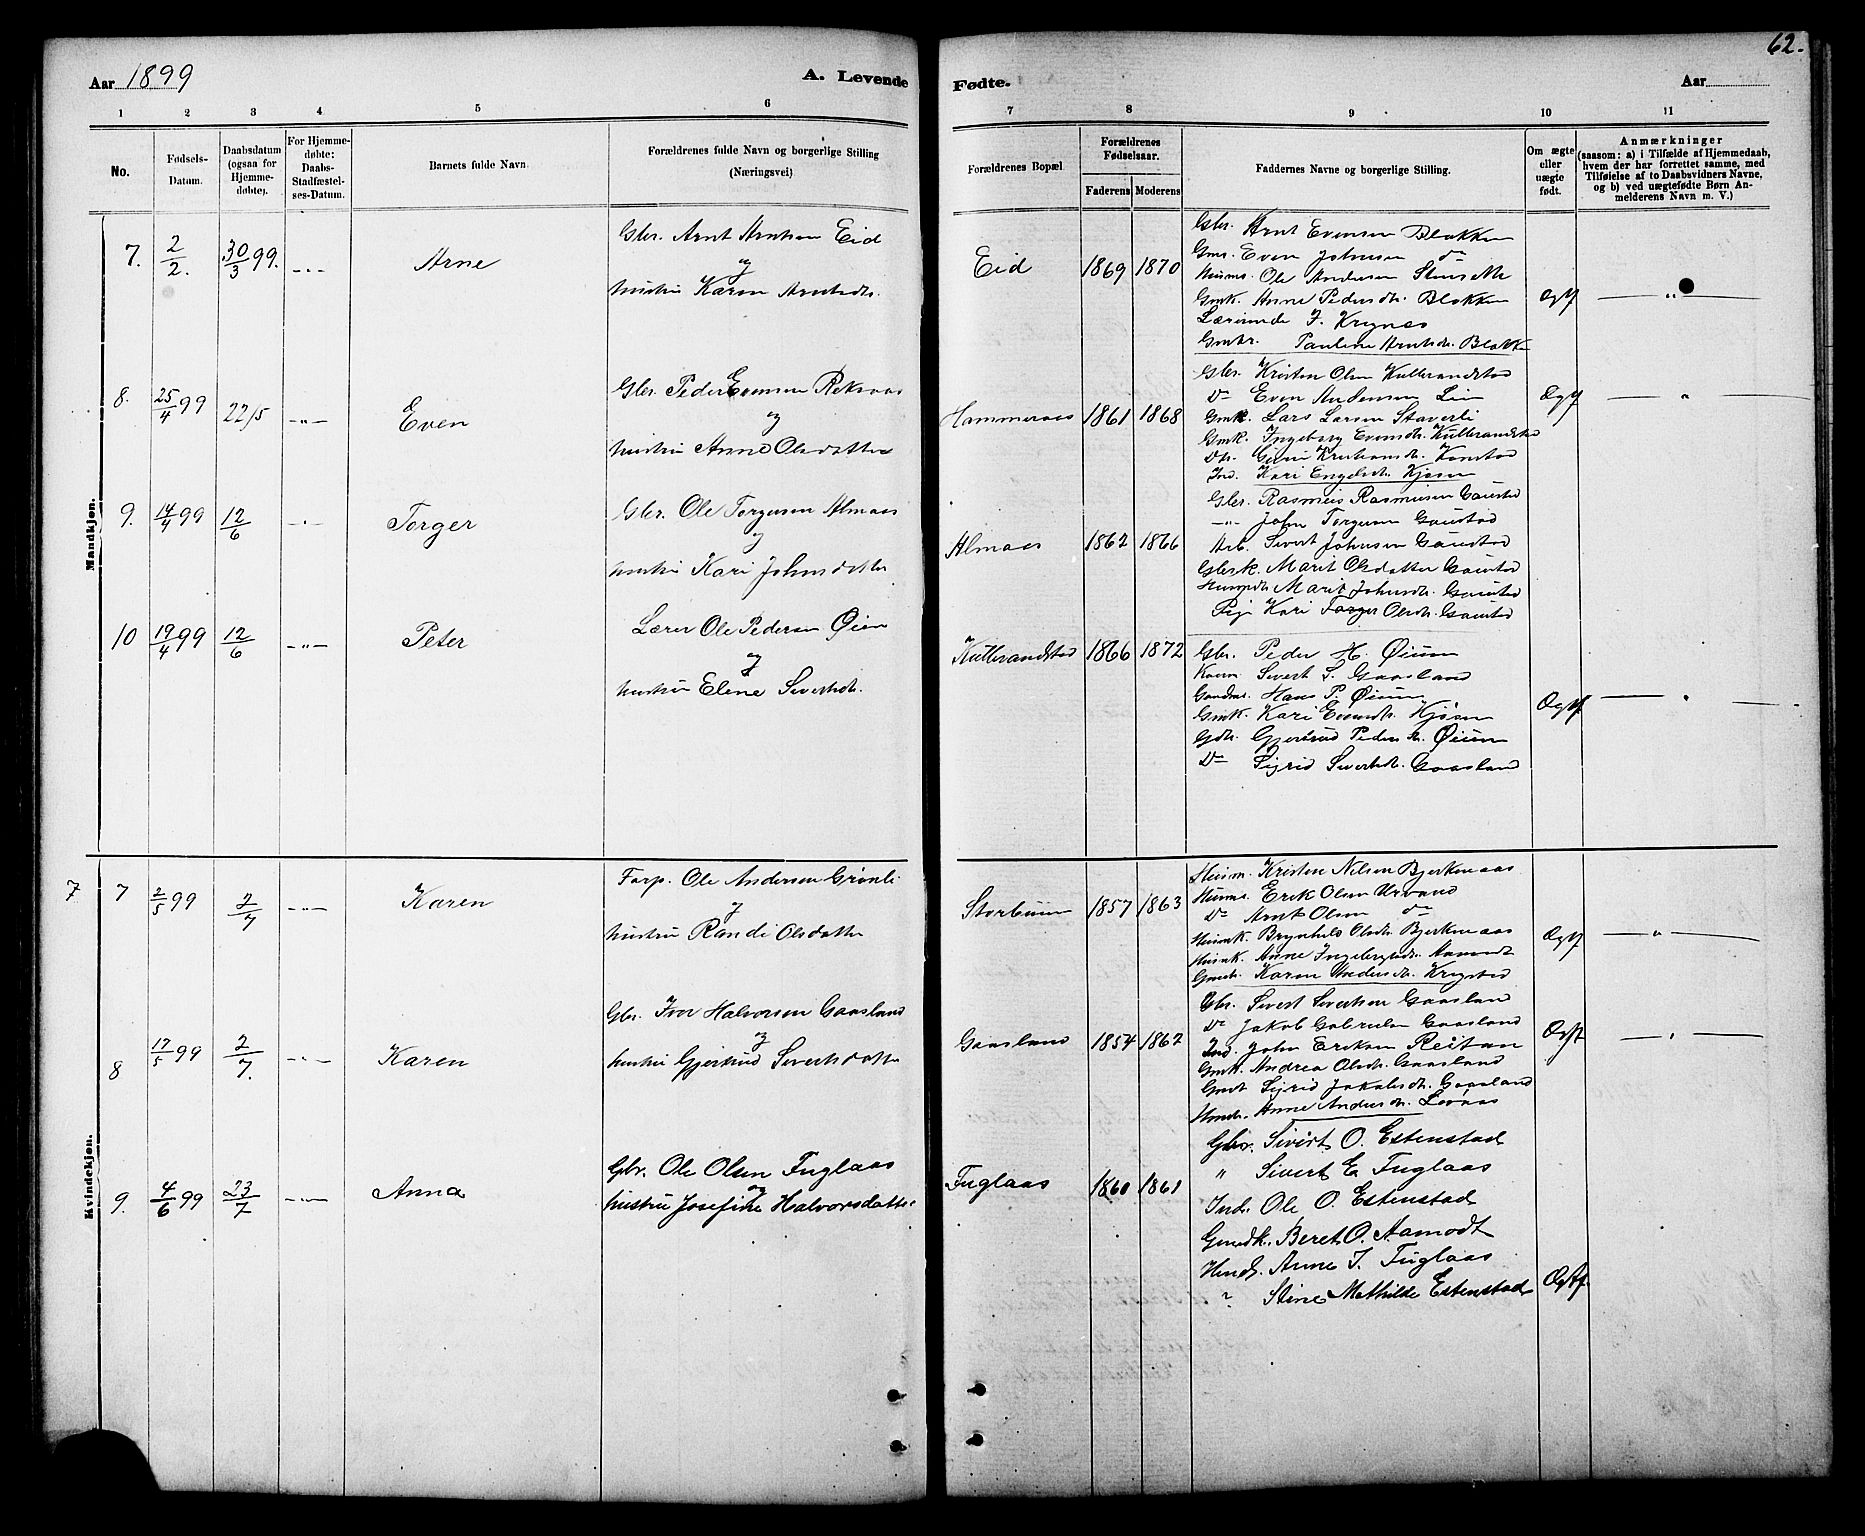 62.
Aar 1899
A. Levende
Fødte.
Aar
1 2 3 4 5 6 7 8 9 10 11
No.
Fødsels-Datum.
Daabsdatum (ogsaa for Hjemmedøbte).
For Hjemmedøbte: Daabs-Stadfæstelses-Datum.
Barnets fulde Navn
Forældrenes fulde Navn og borgerlige Stilling
(Næringsvei)
Forældrenes Bopæl
Forældrenes Fødselsaar.
Faderens Moderens
Faddernes Navne og borgerlige Stilling.
Om ægte eller uægte født.
Anmærkninger
(saasom: a) i Tilfælde af Hjemmedaab, hvem der har forrettet samme, med Tilføielse af to Daabsvidners Navne, og b) ved uægtefødte Børn Anmelderens Navn m. V.)
Mandkjøn.
7. 2/2. 30/3 99. -"- Arne
Gbr. Arnt Arntsen Eid
og
hustru Karen Arntsdtr.
Eid 1869 1870
Gbr. Arnt Evensen Blokken
Gmr. Even Johnsen do
Husms. Ole Andersen
Gmk. Anne Pedersdtr. Blokken
Lærerinde J. Krygnes
Pauline Arntsdr. Blokken
Ægtf — " —
8. 25/4 99 22/5 -"- Even
Gbr. Peder Evensen Reksaas
og
hustru Anne Olsdatter
Hammeraas 1861 1868
Gbr. Kristen Olsen Kulbrandstad
Do Even Andersen Lien
Gmk. Lars Larsen Staverli
Gmk. Ingeborg Evensdr. Kulbrandstad
Ind. Kari Engelsdr. Kjøsen
Ægtf — " —
9. 14/4 99 12/6 -"- Torger
Gbr. Ole Torgersen Almaas
og
hustru Kari Johnsdatter
Almaas 1862 1866
Gbr. Rasmus Rasmusen Gaustad
-"- John Torgersen Gaustad
Arb. Sivert Johnsen Gaustad
Gbrk. Marit Olsdatter Gaustad
Marit Johnsdr. Gaustad
Pige Kari Olsdr. Gaustad
10 19/4 99 12/6 -"- Peter
Lærer Ole Pedersen Øien
og
hustru Elene Sivertsdr.
Kulbrandstad 1866 1872
Gbr. Peder H. Øium
Sivert S. Gaasland
Gaardms. Hans P. Øium
Gmk. Kari Evensdr. Kjøsen
Gdtr. Gjertrud Pedersdr. Øium
Do Sigrid Sivertsdr. Gaasland
Ægtf — " —
Kvindekjøn.
7 7 2/5 99 2/7 -"- Karen
Forp. Ole Andersen Grønli
og
hustru Randi Olsdatter
Storbuen 1857 1863
Husm. Kristen Nilsen Bjerkenaas
Husms. Erik Olsen Urvand
Do Arnt Olsen do
Husmk. Brynhild Olsdr. Bjerkenaas
Husmk. Anne Ingebrigtsdr. Aamodt
Karen Andersdr. Krogstad
Ægtf — " —
8 17/5 99 2/7. -"- Karen
Gbr. Iver Halvorsen Gaasland
og
hustru Gjertrud Sivertsdatter
Gaasland 1854 1862
Gbr. Sivert Sivertsen Gaasland
Do Jakob Gabrielsen Gaasland
Ind. John Eriksen Reitan
Gmk. Andrea Olsdr. Gaasland
Sigrid Jakobsdr. Gaasland
Anne Andersdr. Løvaas
Ægtf — " —
9. 4/6 99 23/7 -"- Anna
Gbr. Ole Olsen Fuglaas
og
hustru Josefine Halvorsdatter
Fuglaas 1860 1861
Gbr. Sivert O. Estenstad
" Sivert E. Fuglaas
Ind. Ole O. Estenstad
Gmdk. Beret O. Aamodt
Anne J. Fuglaas
" Stine Mathilde Estenstad
Ægtf.